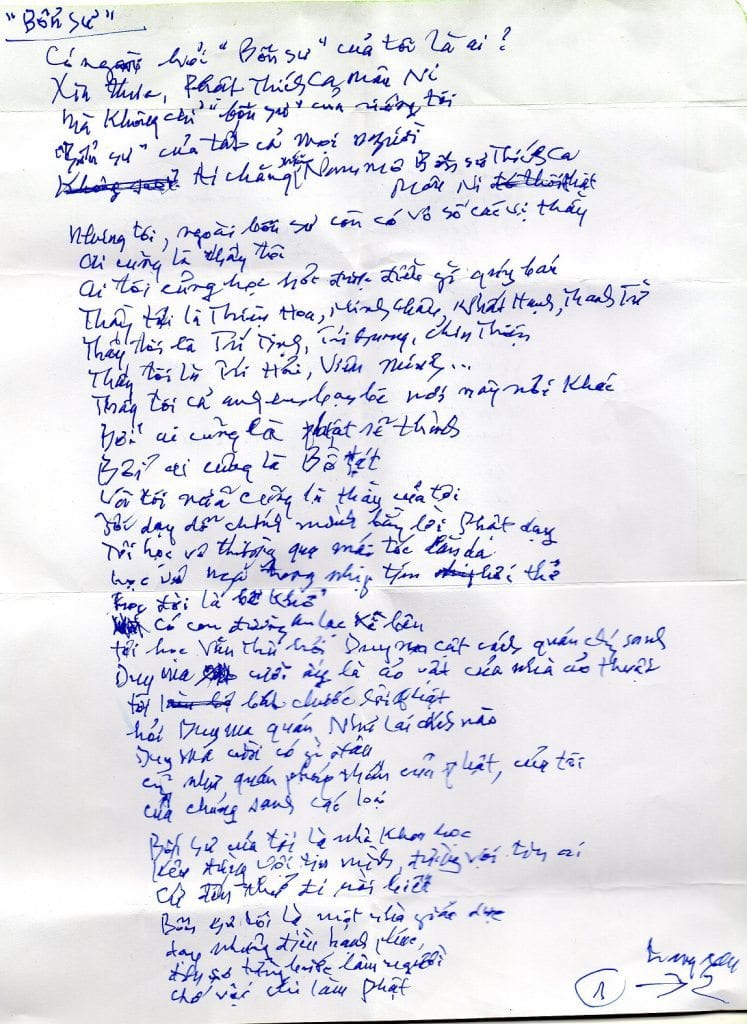 "Bổn sư"
Có người hỏi "Bổn sư" của tôi là ai?
Xin thưa, Phật Thích Ca Mâu Ni
Mà không chỉ "bổn sư" của riêng tôi
"Bổn sư" của tất cả mọi người
Ai chẳng Nam mô Bổn sư Thích Ca
Mâu Ni
Nhưng tôi, ngoài bổn sư còn có vô số các vị thầy
Ai cũng là thầy tôi
Ai tôi cũng học hỏi được điều gì quý báu
Thầy tôi là Thiện Hoa, Minh Châu, Nhất Hạnh, Thanh Từ
Thầy tôi là Trí Tịnh, Chơn Thiện
Thầy tôi là Trí Hải, Viên Minh...
Thầy tôi cả anh em bạn bè nơi này nơi khác
Bởi ai cũng là Phật sẽ thành
Bởi ai cũng là Bồ tát
Với tôi nữa cũng là thầy của tôi
Tôi dạy dỗ chính mình bằng lời Phật dạy
Tôi học vô thường qua mái tóc làn da
học vô ngã trong nhịp tim hơi thở
học đời là bể khổ
Có con đường an lạc kề bên
tôi học Văn Thù hỏi Duy ma cật cách quán chúng sanh
Duy ma cười ấy là ảo vật của nhà ảo thuật
tôi bắt chước lời Phật
hỏi Duy ma quán Như Lai cách nào
Duy ma cười có gì đâu
cứ như quán pháp thân của Phật, của tôi
của chúng sanh các loại
Bổn sư của tôi là nhà khoa học
Kêu đừng vội tin mình, đừng vội tin ai
Cứ đến thử đi rồi biết
Bổn sư tôi là một nhà giáo dục
dạy những điều hạnh phúc,
từng bước làm người
chớ vội chi làm Phật
1 → 2